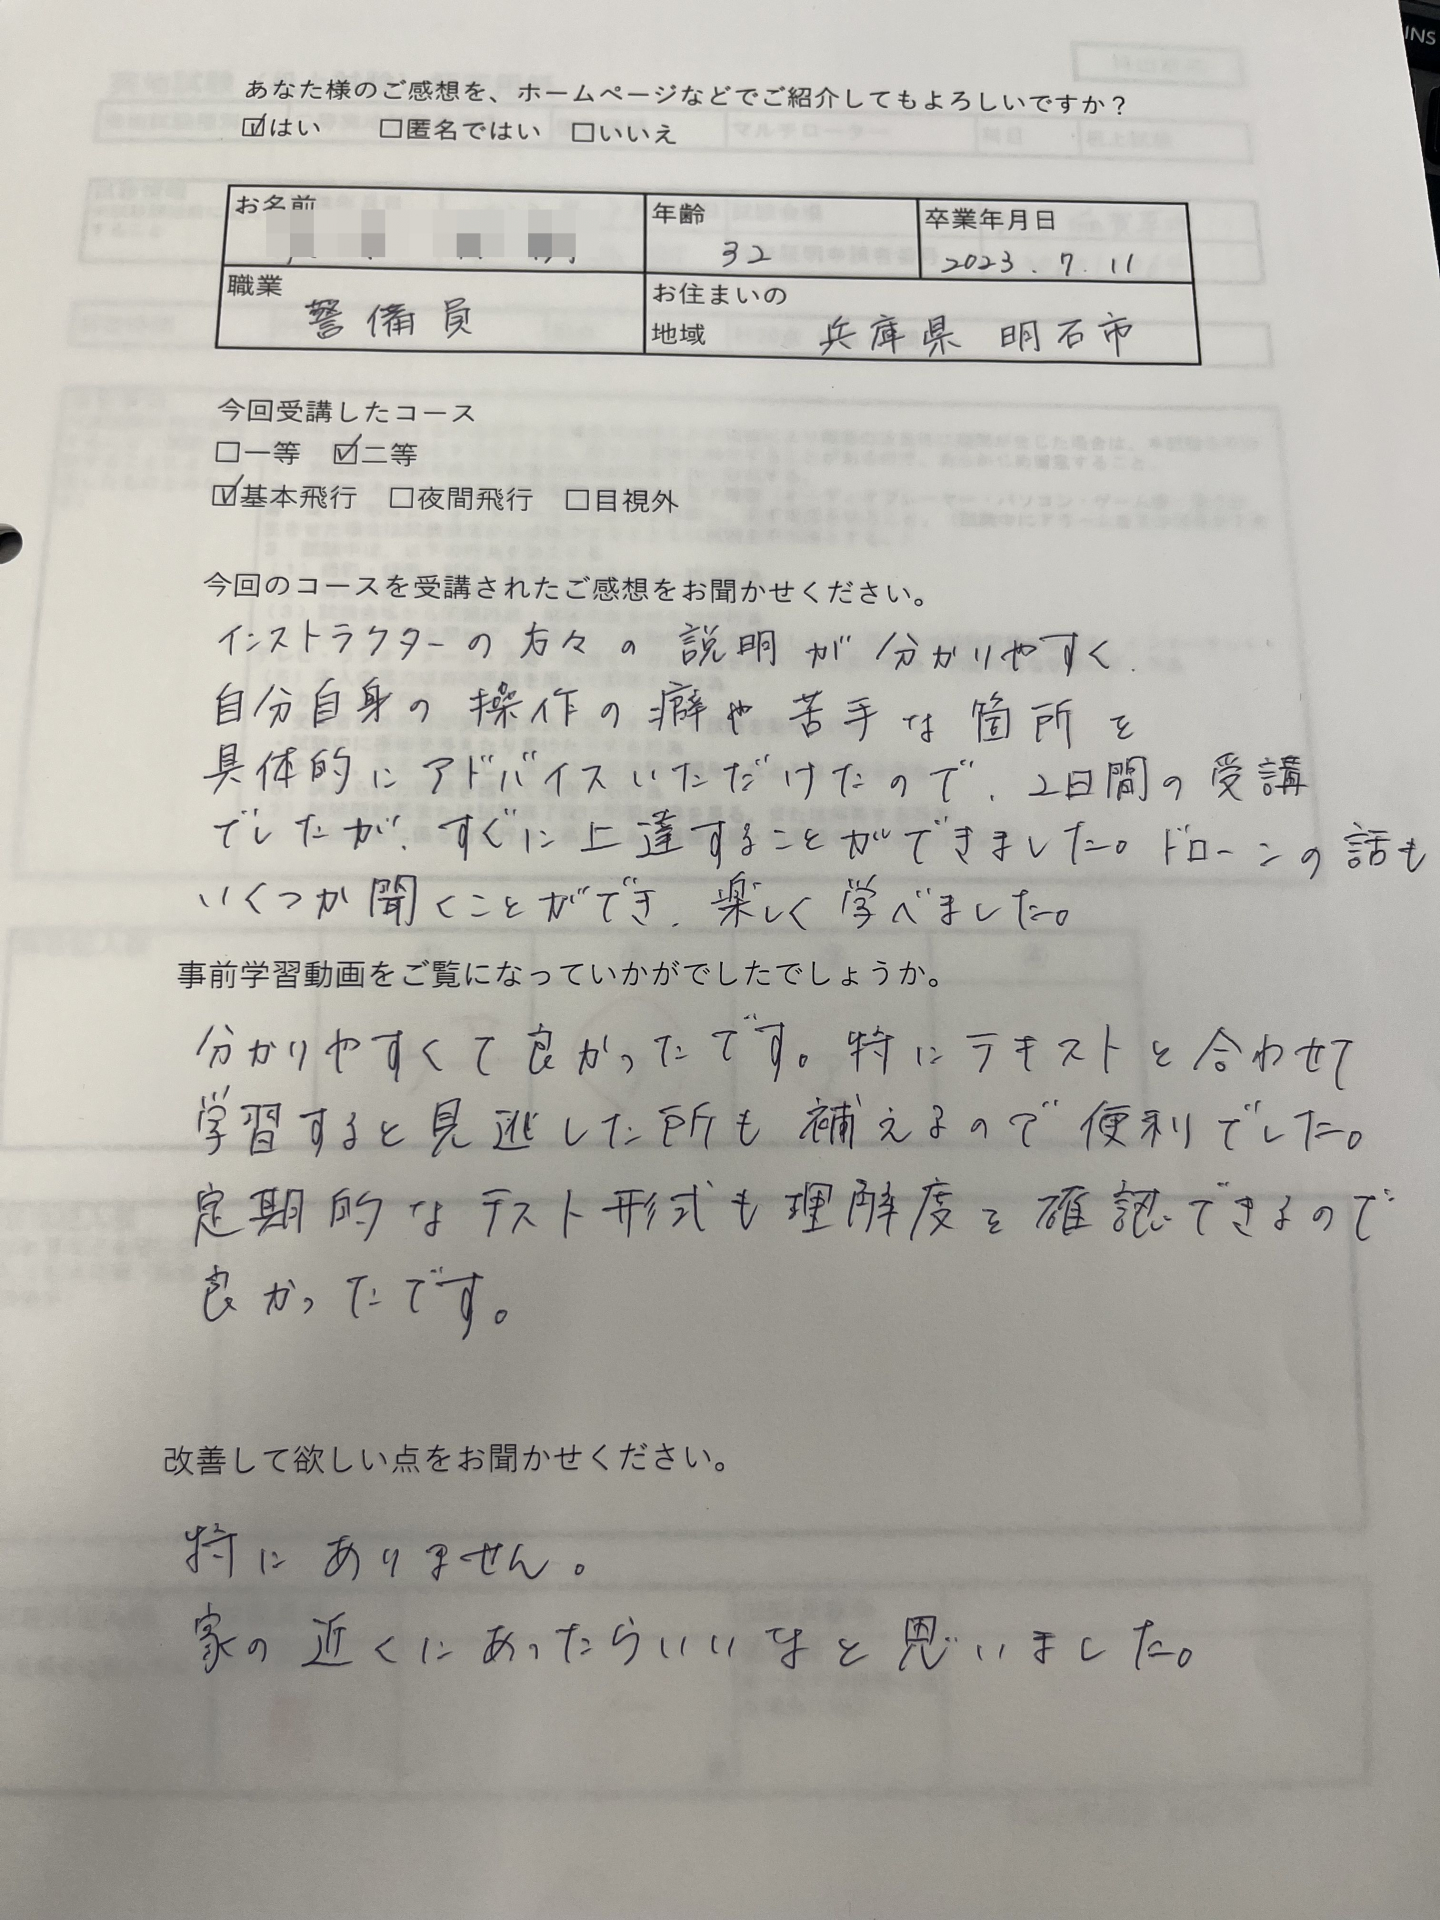 あなた様のご感想を、ホームページなどでご紹介してもよろしいですか？
☑はい　□匿名ではい　□いいえ
お名前
年齢
32
卒業年月日
2023.7.11
職業
警備員
お住まいの
地域
兵庫県 明石市
今回受講したコース
□一等　☑二等
☑基本飛行　□夜間飛行　□目視外
今回のコースを受講されたご感想をお聞かせください。
インストラクターの方々の説明が分かりやすく、
自分自身の操作の癖や苦手な箇所を
具体的にアドバイスいただけたので、2日間の受講
でしたが、すぐに上達することができました。ドローンの話も
いくつか聞くことができ、楽しく学べました。
事前学習動画をご覧になっていかがでしたでしょうか。
分かりやすくて良かったです。特にテキストと合わせて
学習すると見逃した所も補えるので便利でした。
定期的なテスト形式も理解度を確認できるので
良かったです。
改善して欲しい点をお聞かせください。
特にありません。
家の近くにあったらいいなと思いました。
INS